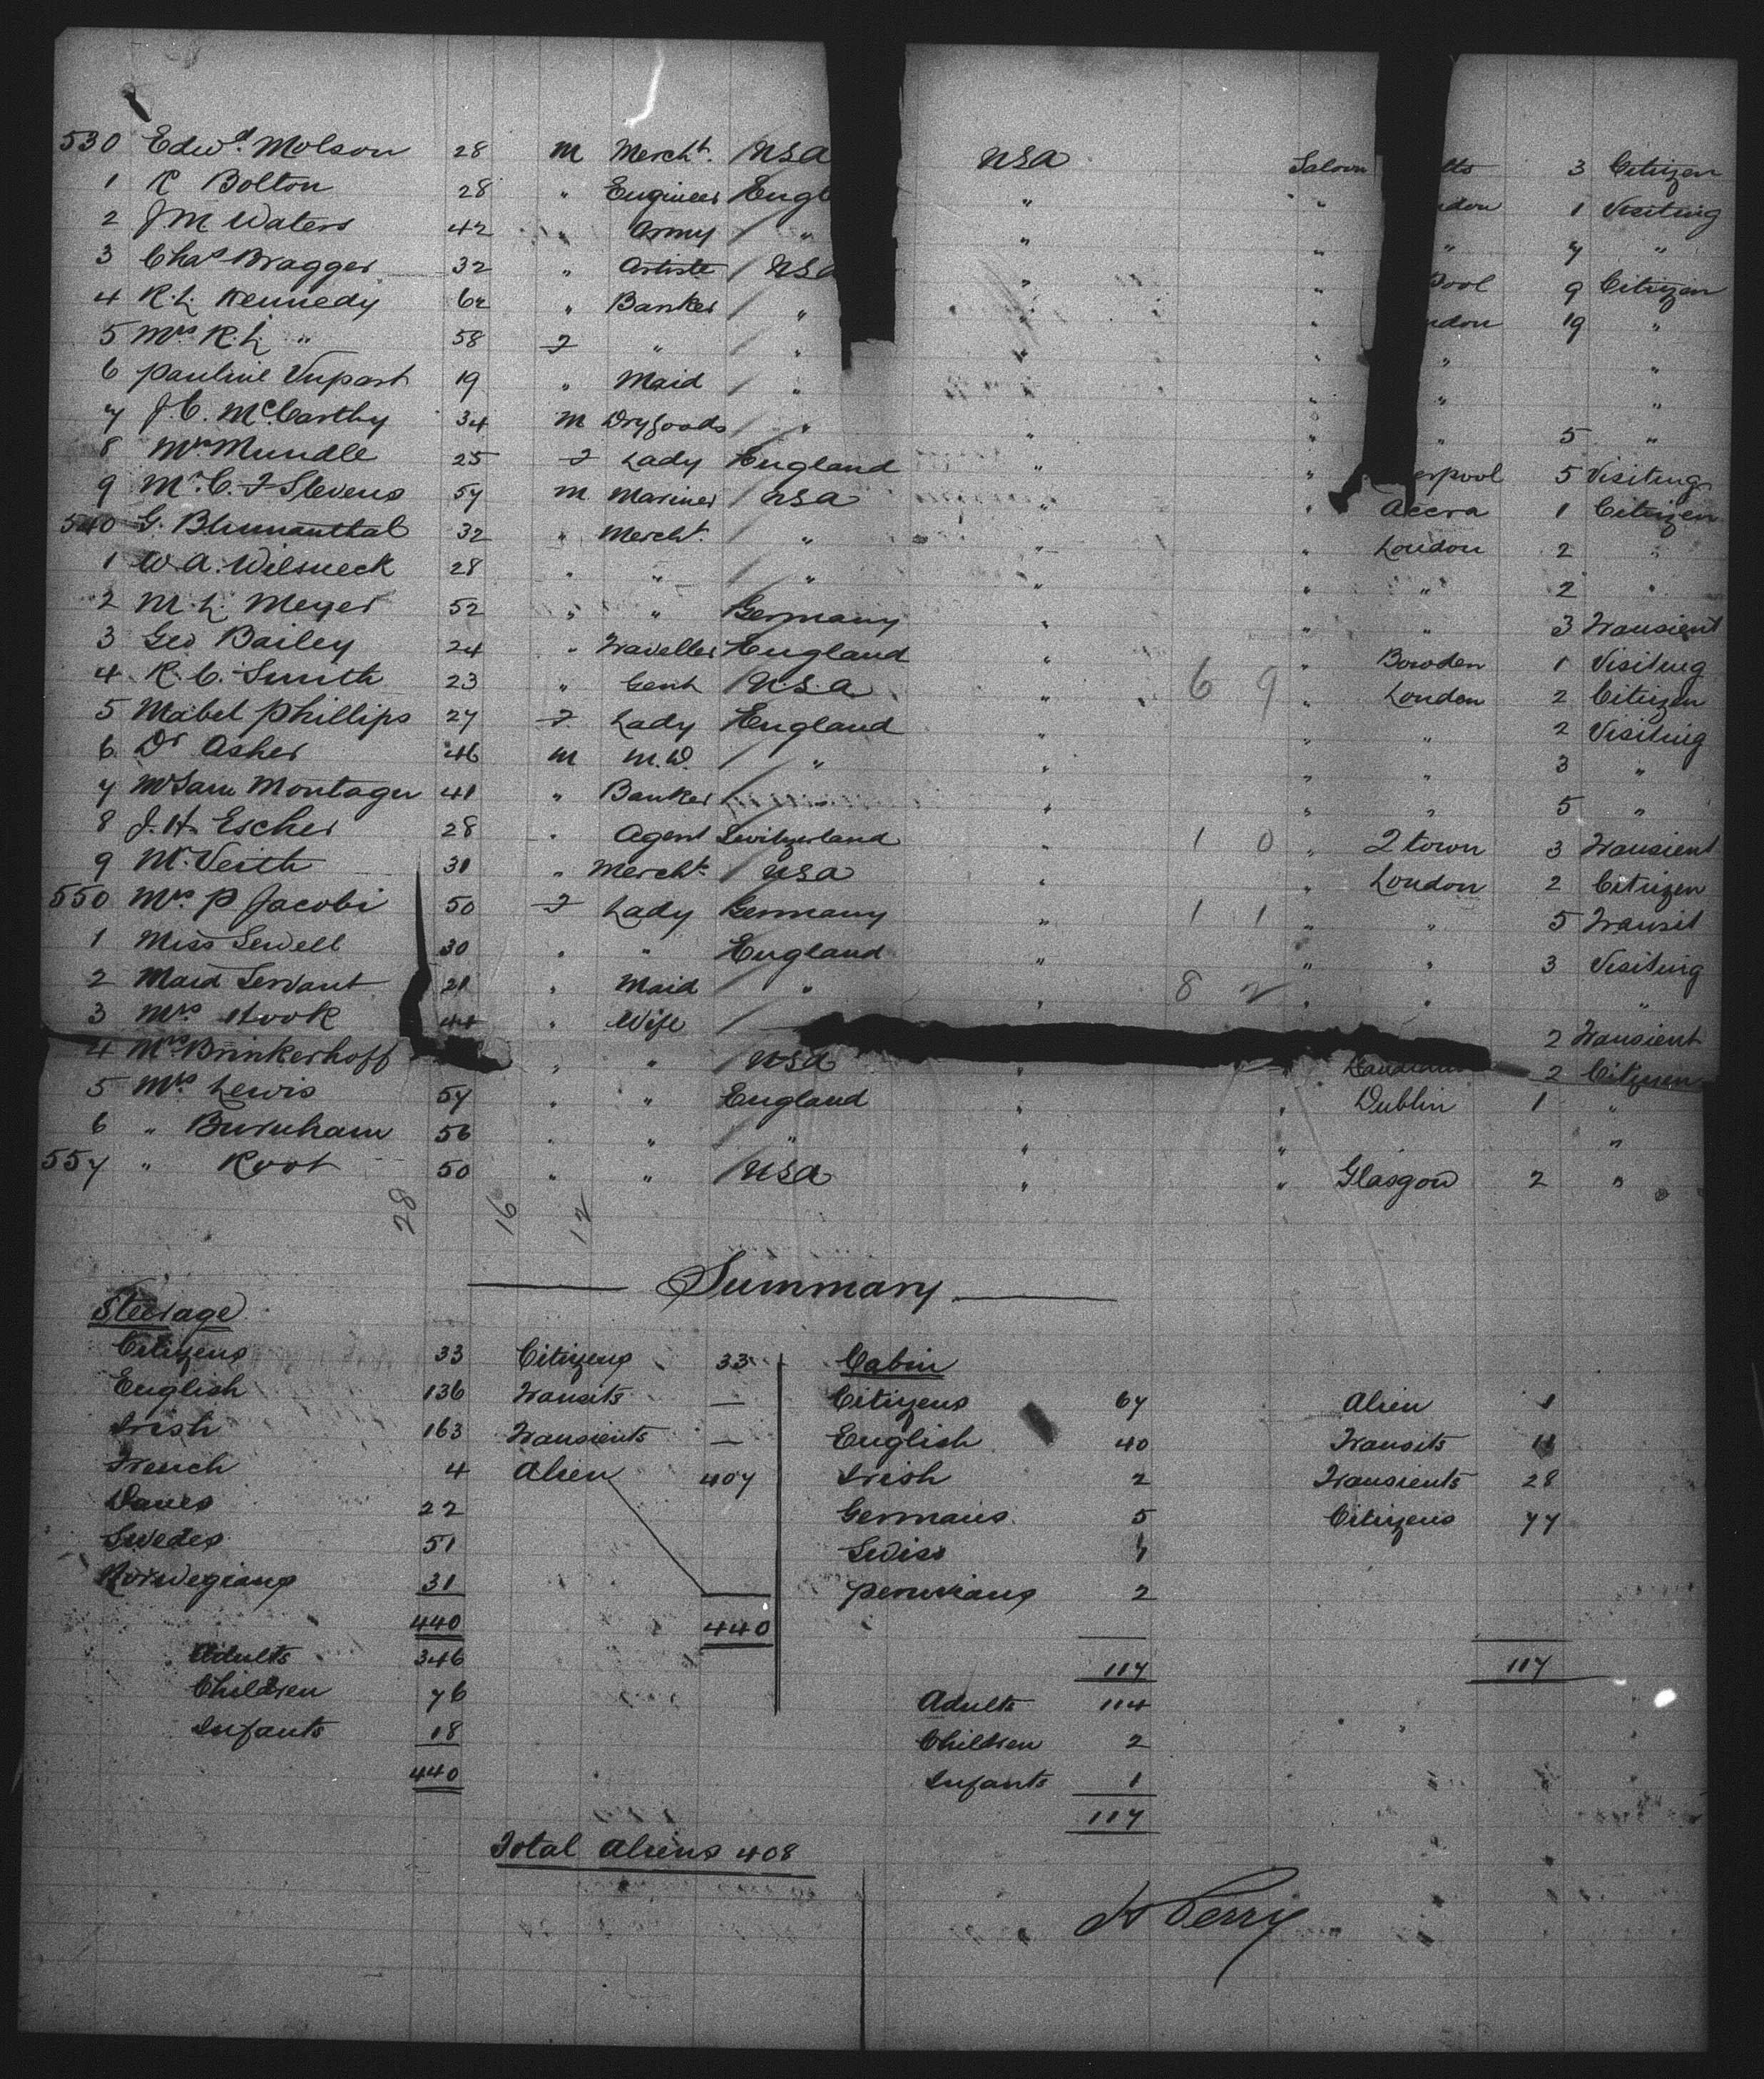 530 Edwd. Molson 28 M Mercht. / USA USA Saloon lts 3 Citizen
1 R Bolton 28 " Engineer Engl " " don 1 Visiting
2 J.M Waters 42 " Army / " " " " 7 "
3 Chas Bragger 32 " Artiste / USA " " pool 9 Citizen
4 R.L. Kennedy 62 " Banker / " " " ndon 19 "
5 Mrs R.L. " 58 F " / " " " " "
6 Pauline 19 " Maid / " " " " "
7 J.C. McCarthy 34 M Drygoods / " " " " 5 "
8 Mrs Mundle 25 F Lady England " " erpool 5 Visiting
9 Mr. C. F Stevens 57 M Mariner / USA " " Accra 1 Citizen
540 G. Blumanthal 32 " Mercht. / " " " London 2 "
1 W.A. Wilsueck 28 " " / " " " " 2 "
2 M.L. Meyer 52 " " Germany " " " 3 Transient
3 Geo Bailey 24 " Traveller England " " Bowden 1 Visiting
4 R.C. Smith 23 " Gent / U.S.A " 6 9 " London 2 Citizen
5 Mabel Phillips 27 F Lady England " " " 2 Visiting
6 Dr Asher 46 M M.D. / " " " " 3 "
7 Mr Saml Montagu 41 " Banker / " " " 5 "
8 J.H. Escher 28 " Agent Switzerland " 1 0 " Q town 3 Transient
9 Mr. Veith 31 " Mercht / USA " " London 2 Citizen
550 Mrs. P Jacobi 50 F Lady Germany " 1 1 " " 5 Transit
1 Miss Sewell 30 " " England " " " 3 Visiting
2 Maid Servant 21 " Maid / " " 8 2 " " "
3 Mrs Hook 44 " Wife / 2 Transient
4 Mrs Brinkerhoff " " / USA " " 2 Citizen
5 Mrs. Lewis 57 " " England " " Dublin 1 "
6 " Burnham 56 " " / " " " "
557 " Root 50 " " / USA " " Glasgow 2 "
28 16 12
Summary
Steerage
Citizens 33 Citizens 33 Cabin
English 136 Transits — Citizens 67 Alien 1
Irish 163 Transients — English 40 Transits 11
French 4 Alien 407 Irish 2 Transients 28
Danes 22 Germans 5 Citizens 77
Swedes 51 Swiss 1
Norwegians 31 Peruvians 2
440 440
117 117
Adults 346
Children 76
Infants 18
440
Adults 114
Children 2
Infants 1
117
Total Aliens 408
Perry